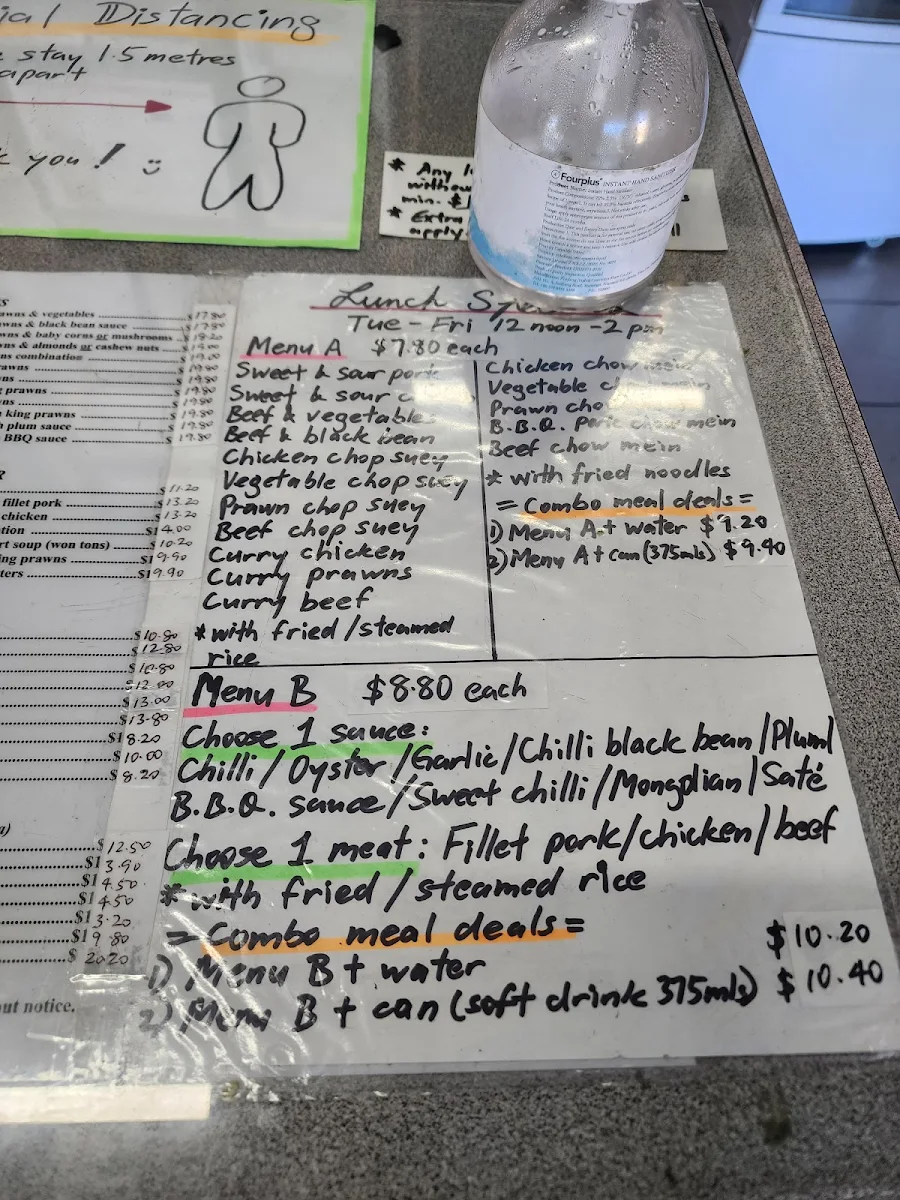 Distancing
stay 1.5 metres
apart
you!
* Any
min.
* Extra
apply.
Fourplus INSTANT HAND SANITIZER
& vegetables $17.80
& black bean sauce $17.80
& baby corns or mushrooms $18.20
& almonds or cashew nuts
combination
prawns $19.80
$19.80
king prawns $19.80
plum sauce $19.80
BBQ sauce $19.80
$11.20
fillet pork $13.20
chicken $13.20
soup (won tons) $10.20
prawns $19.90
$19.90
$10.80
$12.80
$10.80
$12.00
$13.00
$13.80
$18.20
$10.00
$8.20
$12.50
$13.90
$14.50
$14.50
$13.20
$19.80
$20.20
notice.
Lunch
Tue - Fri 12 noon - 2 pm
Menu A $7.80 each
Sweet & sour pork
Sweet & sour
Beef & vegetables
Beef & black bean
Chicken chop suey
Vegetable chop suey
Prawn chop suey
Beef chop suey
Curry chicken
Curry prawns
Curry beef
* with fried / steamed
rice
Chicken chow mein
Vegetable chow mein
Prawn chow
B.B.Q. Pork chow mein
Beef chow mein
* with fried noodles
= Combo meal deals =
1) Menu A + water $9.20
2) Menu A + can (375mls) $9.40
Menu B $8.80 each
Choose 1 sauce:
Chilli / Oyster / Garlic / Chilli black bean / Plum /
B.B.Q. sauce / Sweet chilli / Mongolian / Saté
Choose 1 meat: Fillet pork / chicken / beef
* with fried / steamed rice
= Combo meal deals =
1) Menu B + water $10.20
2) Menu B + can (soft drink 375mls) $10.40